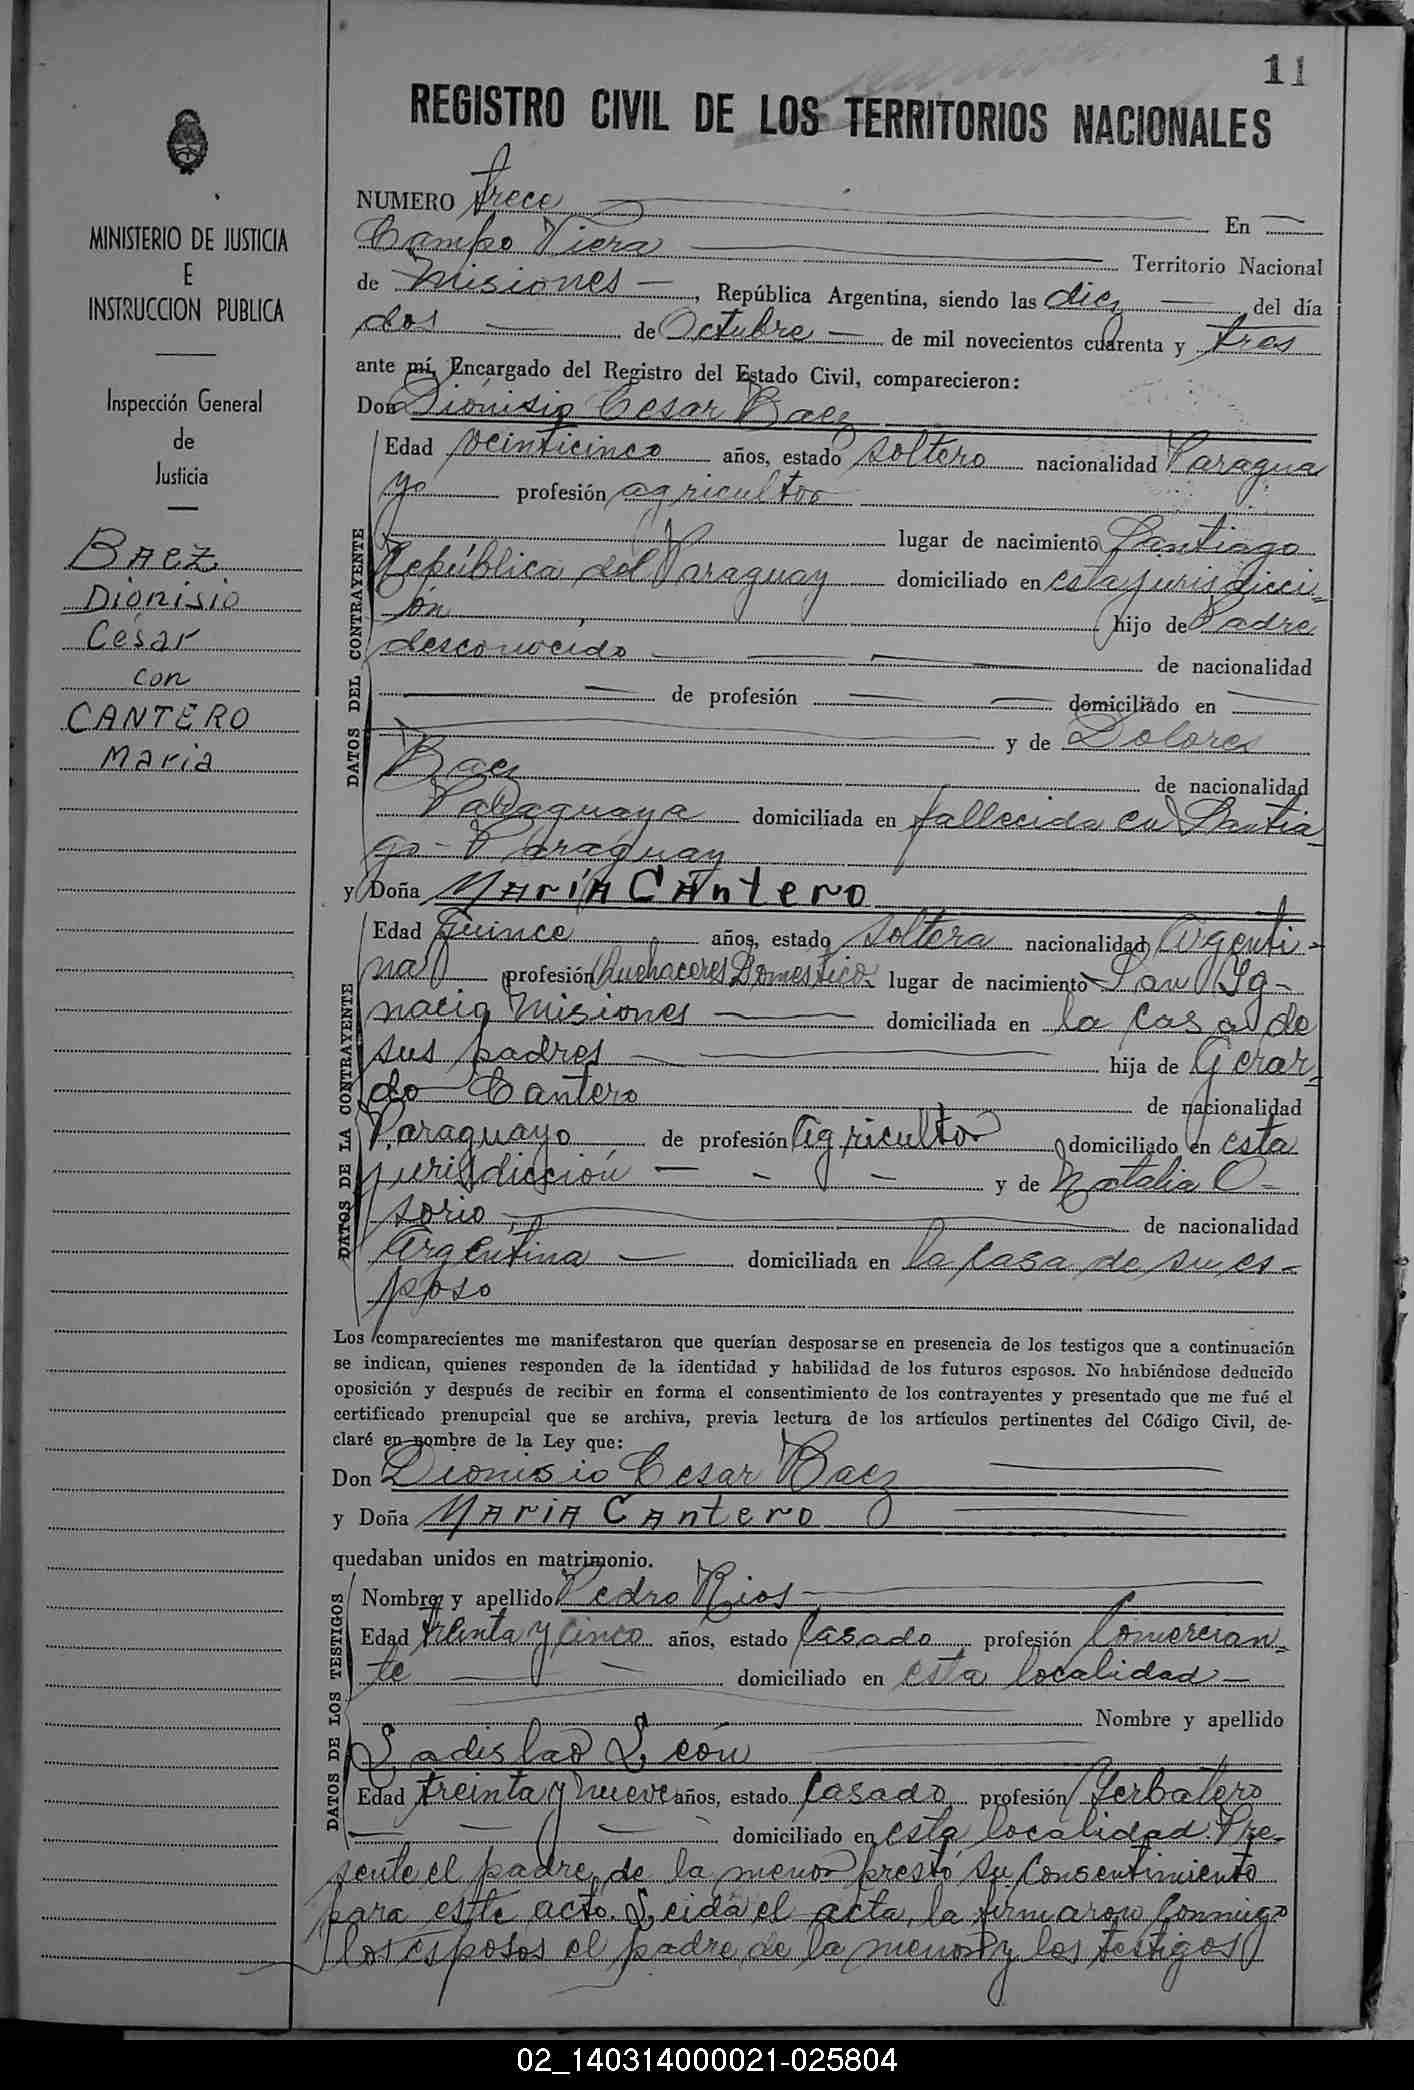 11
REGISTRO CIVIL DE LOS TERRITORIOS NACIONALES
MINISTERIO DE JUSTICIA
E
INSTRUCCION PUBLICA
Inspección General
de
Justicia
BAEZ
Dionisio
César
con
CANTERO
Maria
NUMERO trece En
Campo Viera Territorio Nacional
de Misiones, República Argentina, siendo las diez del día
dos de Octubre de mil novecientos cuarenta y tres
ante mí, Encargado del Registro del Estado Civil, comparecieron:
Don Dionisio Cesar Baez
DATOS DEL CONTRAYENTE
Edad veinticinco años, estado soltero nacionalidad Paragua
yo profesión agricultor
lugar de nacimiento Santiago
República del Paraguay domiciliado en esta jurisdicci=
ón hijo de Padre
desconocido de nacionalidad
de profesión domiciliado en
y de Dolores
Baez de nacionalidad
Paraguaya domiciliada en fallecida en Santia
go - Paraguay
y Doña María Cantero
DATOS DE LA CONTRAYENTE
Edad Quince años, estado soltera nacionalidad Argenti-
na profesión Quehaceres Domésticos lugar de nacimiento San Ig-
nacio Misiones domiciliada en la casa de
sus padres hija de Gerar-
do Cantero de nacionalidad
Paraguayo de profesión Agricultor domiciliado en esta
jurisdicción y de Natalia O=
sorio de nacionalidad
Argentina domiciliada en la casa de su es-
poso
Los comparecientes me manifestaron que querían desposarse en presencia de los testigos que a continuación
se indican, quienes responden de la identidad y habilidad de los futuros esposos. No habiéndose deducido
oposición y después de recibir en forma el consentimiento de los contrayentes y presentado que me fué el
certificado prenupcial que se archiva, previa lectura de los artículos pertinentes del Código Civil, de-
claré en nombre de la Ley que:
Don Dionisio Cesar Baez
y Doña Maria Cantero
quedaban unidos en matrimonio.
DATOS DE LOS TESTIGOS
Nombre y apellido Pedro Rios
Edad treinta y cinco años, estado Casado profesión Comercian=
te domiciliado en esta localidad
Nombre y apellido
Ladislao León
Edad treinta y nueve años, estado Casado profesión Yerbatero
domiciliado en esta localidad. Pre-
sente el padre de la menor prestó su Consentimiento
para este acto. Leida el acta, la firmaron Conmigo
los esposos el padre de la menor y los testigos
02_140314000021-025804